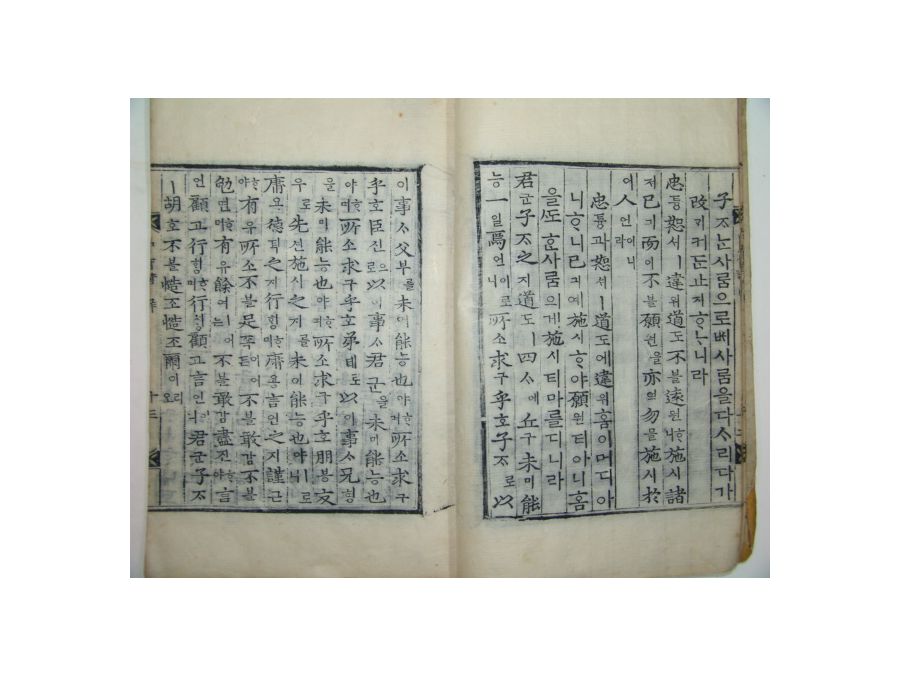 子ᄌᆞᄂᆞᆫ사ᄅᆞᆷ으로ᄡᅥ사ᄅᆞᆷ을다ᄉᆞ리다가
改ᄀᆡ커든止지ᄒᆞᄂᆞ니라
忠튱恕셔ㅣ違위道도不블遠원ᄒᆞ니施시諸
져己긔而이不블願원을亦역勿믈施시於
어人인이니라
忠튱과恕셔ㅣ道도에違위홈이머디아
니ᄒᆞ니己긔예施시ᄒᆞ야願원티아니홈
을ᄯᅩᄒᆞᆫ사ᄅᆞᆷ의게施시티마를디니라
君군子ᄌᆞ之지道도ㅣ四ᄉᆞ애丘구未미能
능一일焉언이로니所소求구乎호子ᄌᆞ로以
이事ᄉᆞ父부를未미能능也야ᄒᆞ며所소求구
乎호臣신으로以이事ᄉᆞ君군을未미能능也
야ᄒᆞ며所소求구乎호弟뎨로以이事ᄉᆞ兄형
을未미能능也야ᄒᆞ며所소求구乎호朋붕友
우로先션施시之지를未미能능也야로니
庸용德덕之지行ᄒᆡᆼᄒᆞ며庸용言언之지謹근
ᄒᆞ야有유所소不블足죡이어든不블敢감不블
勉면ᄒᆞ며有유餘여ㅣ어든不블敢감盡진ᄒᆞ야言
언顧고行ᄒᆡᆼᄒᆞ며行ᄒᆡᆼ顧고言언이니君군子ᄌᆞ
ㅣ胡호不블慥조慥조爾이리오